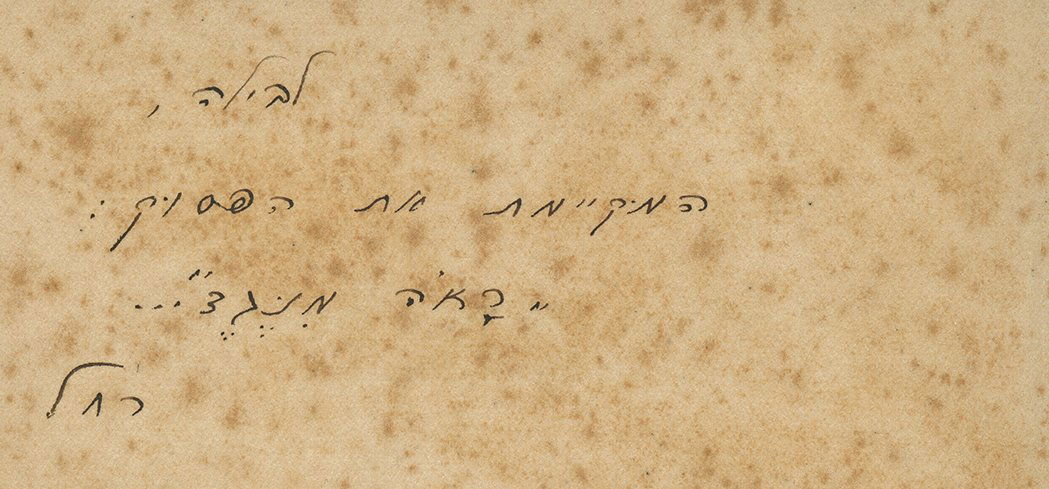 לבילה ,
המקיימת את הפסוק :
„רָאֹה מִנֶּגֶד"...
רחל